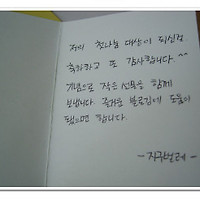 저의 첫나눔 대상이 되신걸
축하하고 또 감사합니다. ^^
기념으로 작은 선물을 함께
보냅니다. 즐거운 블로깅에 도움이
됐으면 합니다.
- 지구벌레 -